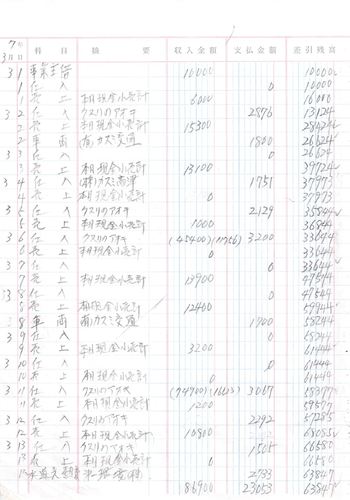 7年
3月 科 目 摘 要 収入金額 支払金額 差引残高
3 1 事業主借 10000 10000
1 仕 入 0 10000
1 売 上 本日現金小売計 6000 16000
3 2 仕 入 クスリのアオキ 2876 13124
2 売 上 本日現金小売計 15300 28424
2 車 両 (有)カズミ交通 1800 26624
3 3 仕 入 0 26624
3 売 上 本日現金小売計 13100 39724
3 4 仕 入 1751 37973
4 売 上 本日現金小売計 0 37973
3 5 仕 入 クスリのアオキ 2129 35844
5 売 上 本日現金小売計 1000 36844
3 6 仕 入 クスリのアオキ 3200 33644
6 売 上 本日現金小売計 0 33644
3 7 仕 入 0 33644
7 売 上 本日現金小売計 13900 47544
3 8 仕 入 0 47544
8 売 上 本日現金小売計 12400 59944
3 8 車 両 (有)カズミ交通 1700 58244
3 9 仕 入 0 58244
9 売 上 本日現金小売計 3200 61444
3 10 仕 入 0 61444
10 売 上 本日現金小売計 0 61444
3 11 仕 入 クスリのアオキ 3067 58377
11 売 上 本日現金小売計 1200 59577
3 12 仕 入 クスリのアオキ 2292 57285
12 売 上 本日現金小売計 10800 68085
3 13 仕 入 クスリのアオキ 1505 66580
13 売 上 本日現金小売計 0 66580
13 水道光熱費 2733 63847
86900 23053 63847